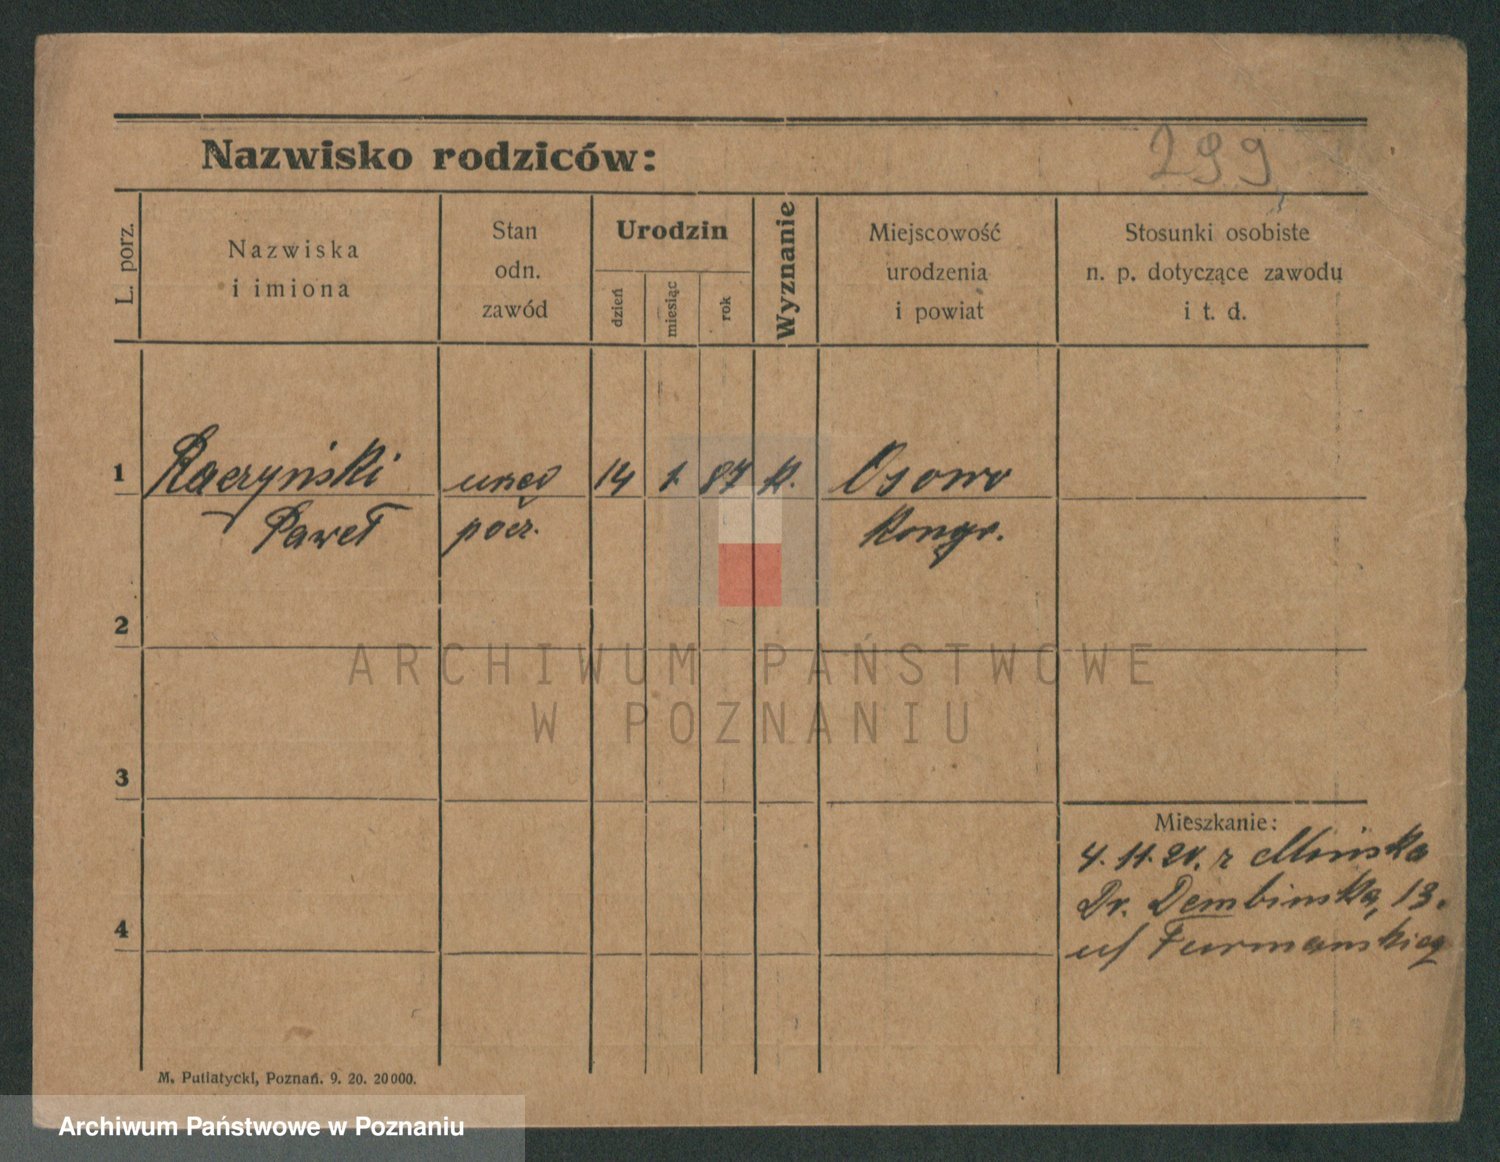 Nazwisko rodziców:
299
L. porz.
Nazwiska
i imiona
Stan
odn.
zawód
Urodzin
dzień
miesiąc
rok
Wyznanie
Miejscowość
urodzenia
i powiat
Stosunki osobiste
n. p. dotyczące zawodu
i t. d.
1
Raczyński
Paweł
urzęd
pocz.
14
1.
87
k.
Osowo
Kongr.
2
3
4
Mieszkanie:
4. 11. 20. z Mińska
Dr. Dembinska, 13.
ul
M. Putiatycki, Poznań. 9. 20. 20000.
ARCHIWUM PAŃSTWOWE
W POZNANIU
Archiwum Państwowe w Poznaniu